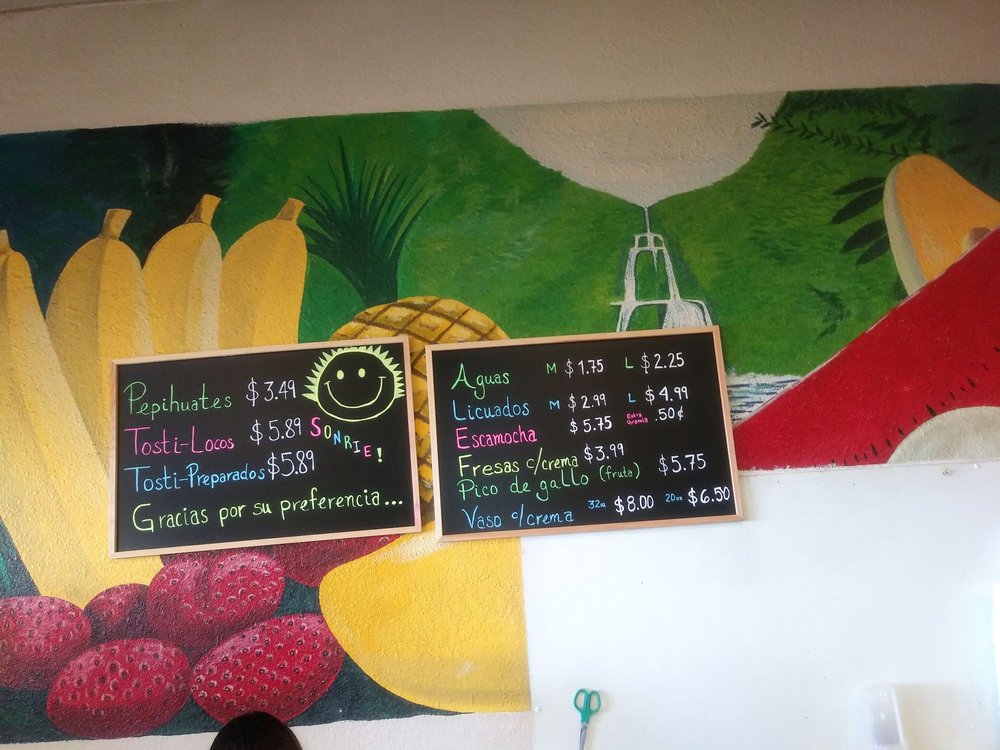 Pepihuates $3.49
Tosti-Locos $5.89
SONRIE!
Tosti-Preparados $5.89
Gracias por su preferencia...
Aguas M $1.75 L $2.25
Licuados M $2.99 L $4.99
Escamocha $5.75 Extra .50¢
Fresas c/crema $3.99
Pico de gallo (fruta) $5.75
Vaso c/crema 32oz $8.00 20oz $6.50